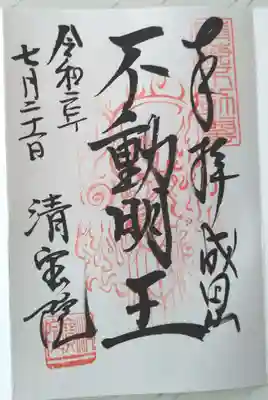 奉拝 成田山
不動明王
令和二年
七月二十一日
清宝院